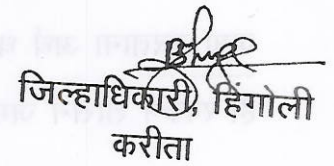 जिल्हाधिकारी, हिंगोली
करीता